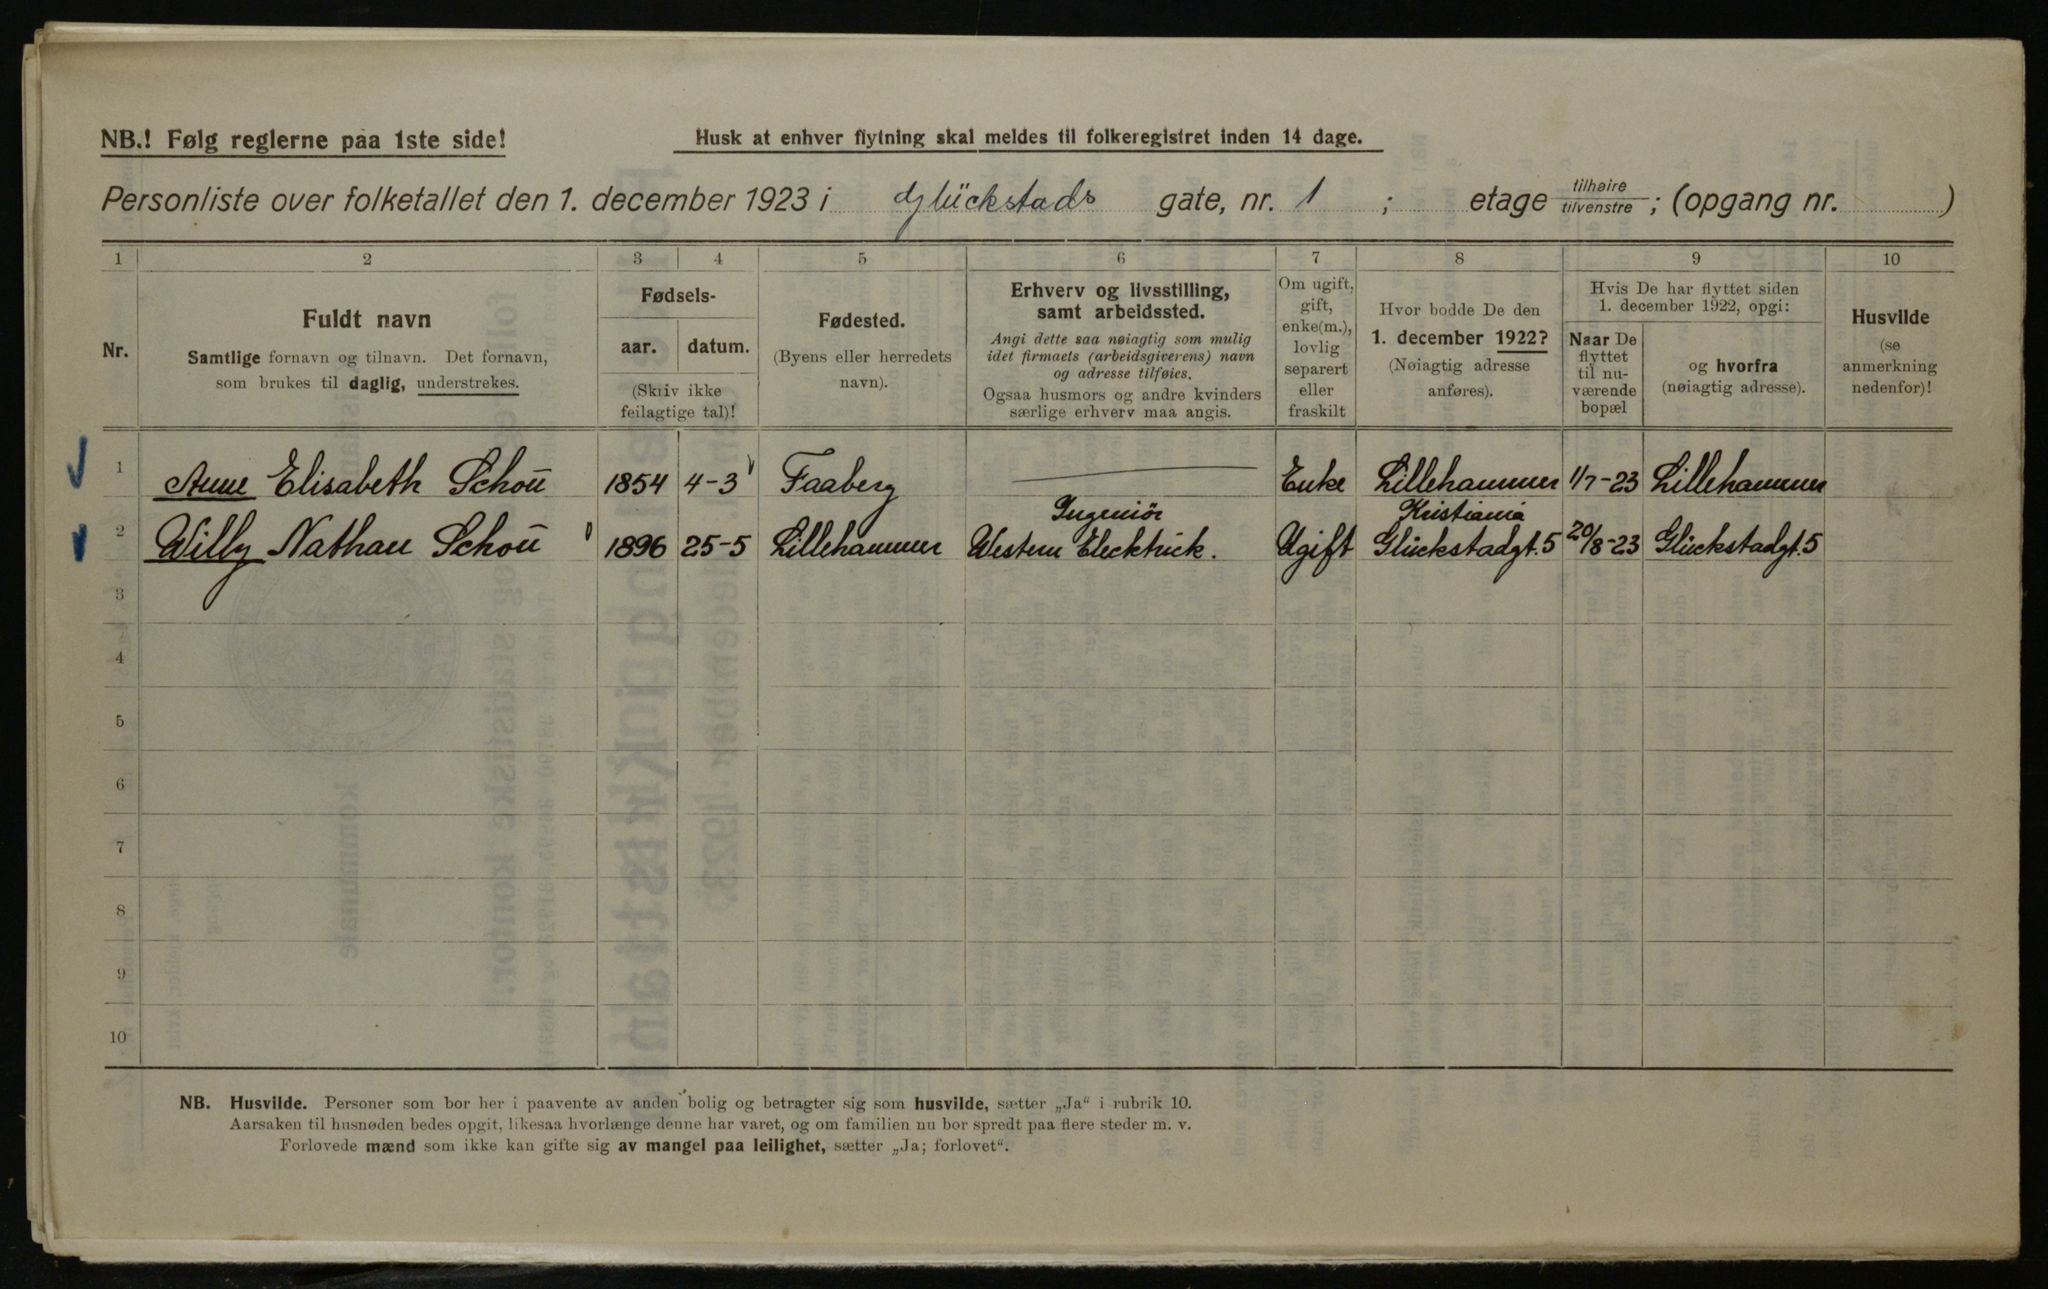 NB.! Følg reglerne paa 1ste side!
Husk at enhver flytning skal meldes til folkeregistret inden 14 dage.
Personliste over folketallet den 1. december 1923 i Glückstads gate, nr. 1 ; etage tilhøire tilvenstre ; (opgang nr. )
1 2 3 4 5 6 7 8 9 10
Nr.
Fuldt navn
Samtlige fornavn og tilnavn. Det fornavn,
som brukes til daglig, understrekes.
Fødsels-
aar. datum.
(Skriv ikke
feilagtige tal)!
Fødested.
(Byens eller herredets
navn).
Erhverv og livsstilling,
samt arbeidssted.
Angi dette saa nøiagtig som mulig
idet firmaets (arbeidsgiverens) navn
og adresse tilføies.
Ogsaa husmors og andre kvinders
særlige erhverv maa angis.
Om ugift,
gift,
enke(m.),
lovlig
separert
eller
fraskilt
Hvor bodde De den
1. december 1922?
(Nøiagtig adresse
anføres).
Hvis De har flyttet siden
1. december 1922, opgi:
Naar De
flyttet
til nu-
værende
bopæl
og hvorfra
(nøiagtig adresse).
Husvilde
(se
anmerkning
nedenfor)!
1 Anne Elisabeth Schou 1854 4-3 Faaberg Enke Lillehammer 1/7-23 Lillehammer
Ingeniör Kristiania
2 Willy Nathan Schou 1896 25-5 Lillehammer Western Elecktrick. Ugift Glückstadgt. 5 20/8-23 Glückstadgt. 5
3
4
5
6
7
8
9
10
NB. Husvilde. Personer som bor her i paavente av anden bolig og betragter sig som husvilde, sætter „Ja“ i rubrik 10.
Aarsaken til husnøden bedes opgit, likesaa hvorlænge denne har varet, og om familien nu bor spredt paa flere steder m. v.
Forlovede mænd som ikke kan gifte sig av mangel paa leilighet, sætter „Ja; forlovet“.